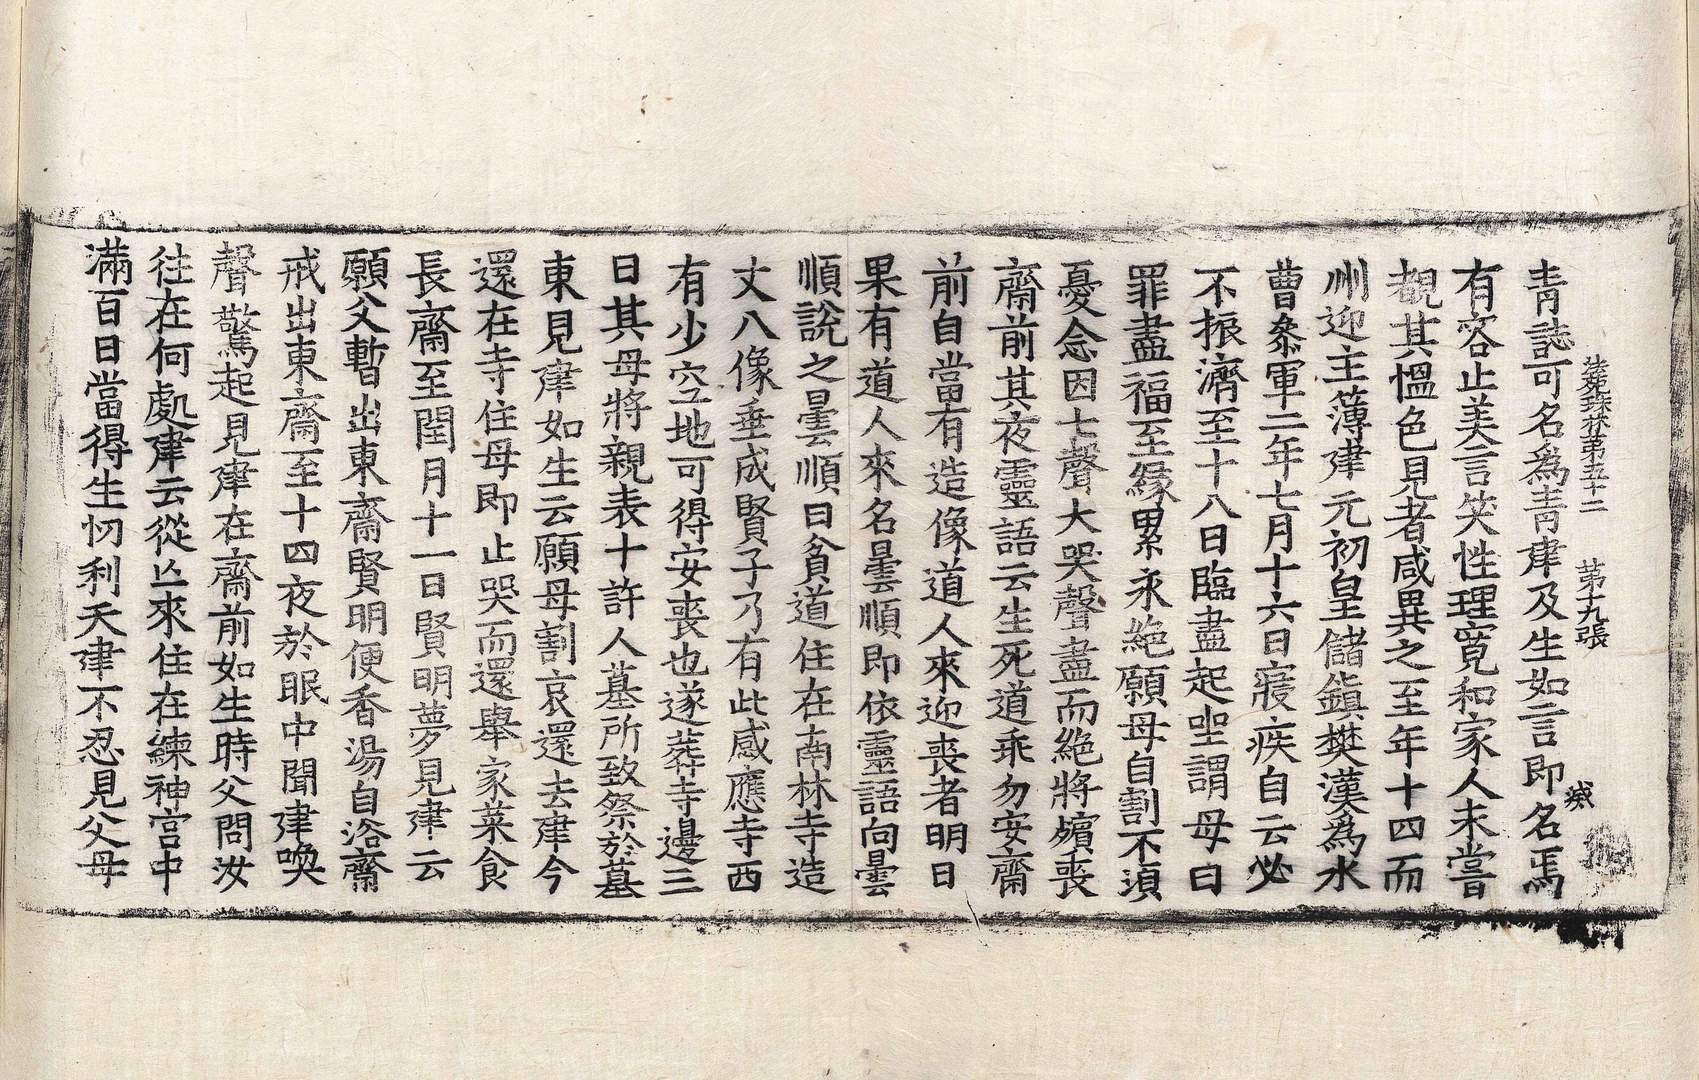 法苑珠林第五十二 第十九張 㱯
青誌可名爲青建及生如言即名焉
有容止美言笑性理寬和家人未嘗
覩其慍色見者咸異之至年十四而
州迎主簿建元初皇儲鎮樊漢爲水
曹叅軍二年七月十六日寢疾自云必
不振濟至十八日臨盡起坐謂母曰
罪盡福至緣累永絕願母自割不湏
憂念因七聲大哭聲盡而絕將殯喪
齋前其夜靈語云生死道乖勿安齋
前自當有造像道人來迎喪者明日
果有道人來名曇順即依靈語向曇
順說之曇順曰貧道住在南林寺造
丈八像垂成賢子乃有此感應寺西
有少空地可得安喪也遂葬寺邊三
日其母將親表十許人墓所致祭於墓
東見建如生云願母割哀還去建今
還在寺住母即止哭而還舉家菜食
長齋至閏月十一日賢明夢見建云
願父暫出東齋賢明便香湯自浴齋
戒出東齋至十四夜於眠中聞建喚
聲驚起見建在齋前如生時父問汝
往在何處建云從亾來住在練神宮中
滿百日當得生忉利天建不忍見父母